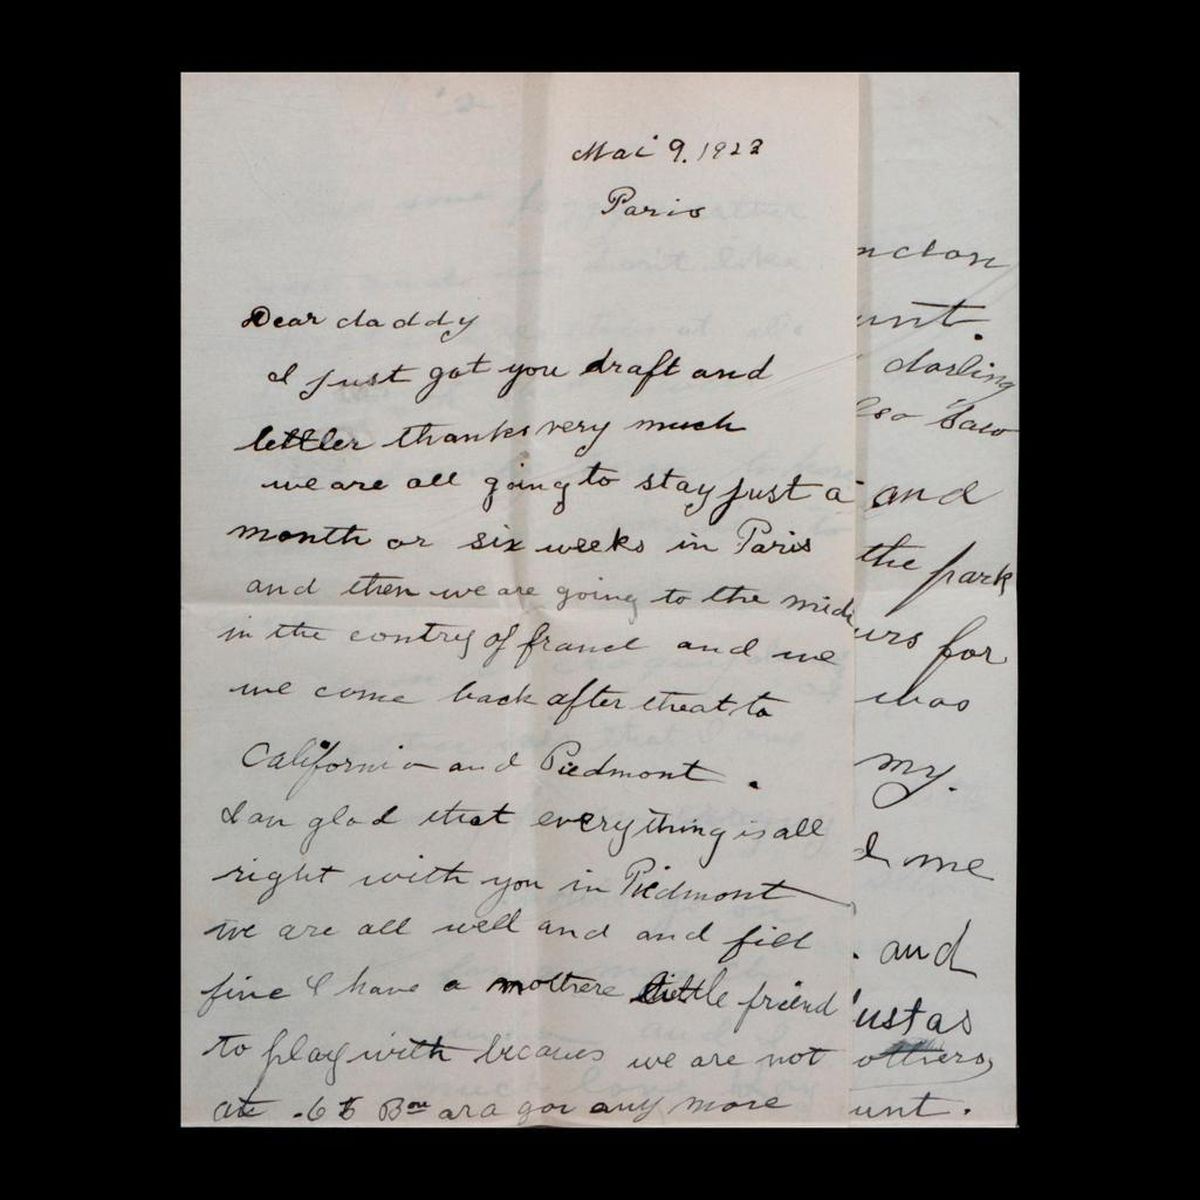 Mai 9. 1923
Paris
Dear daddy
I just got you draft and
lettler thanks very much
we are all going to stay just a
month or six weeks in Paris
and then we are going to the midi
in the contrey of france and we
we come back after that to
California and Piedmont.
I an glad that everything is all
right with you in Piedmont
we are all well and and fill
fine I have a little friend
to play with we are not
ate Bou any more
unt.
darling
lso saw
and
the park
urs for
was
my.
d me
. and
ust as
others,
unt.